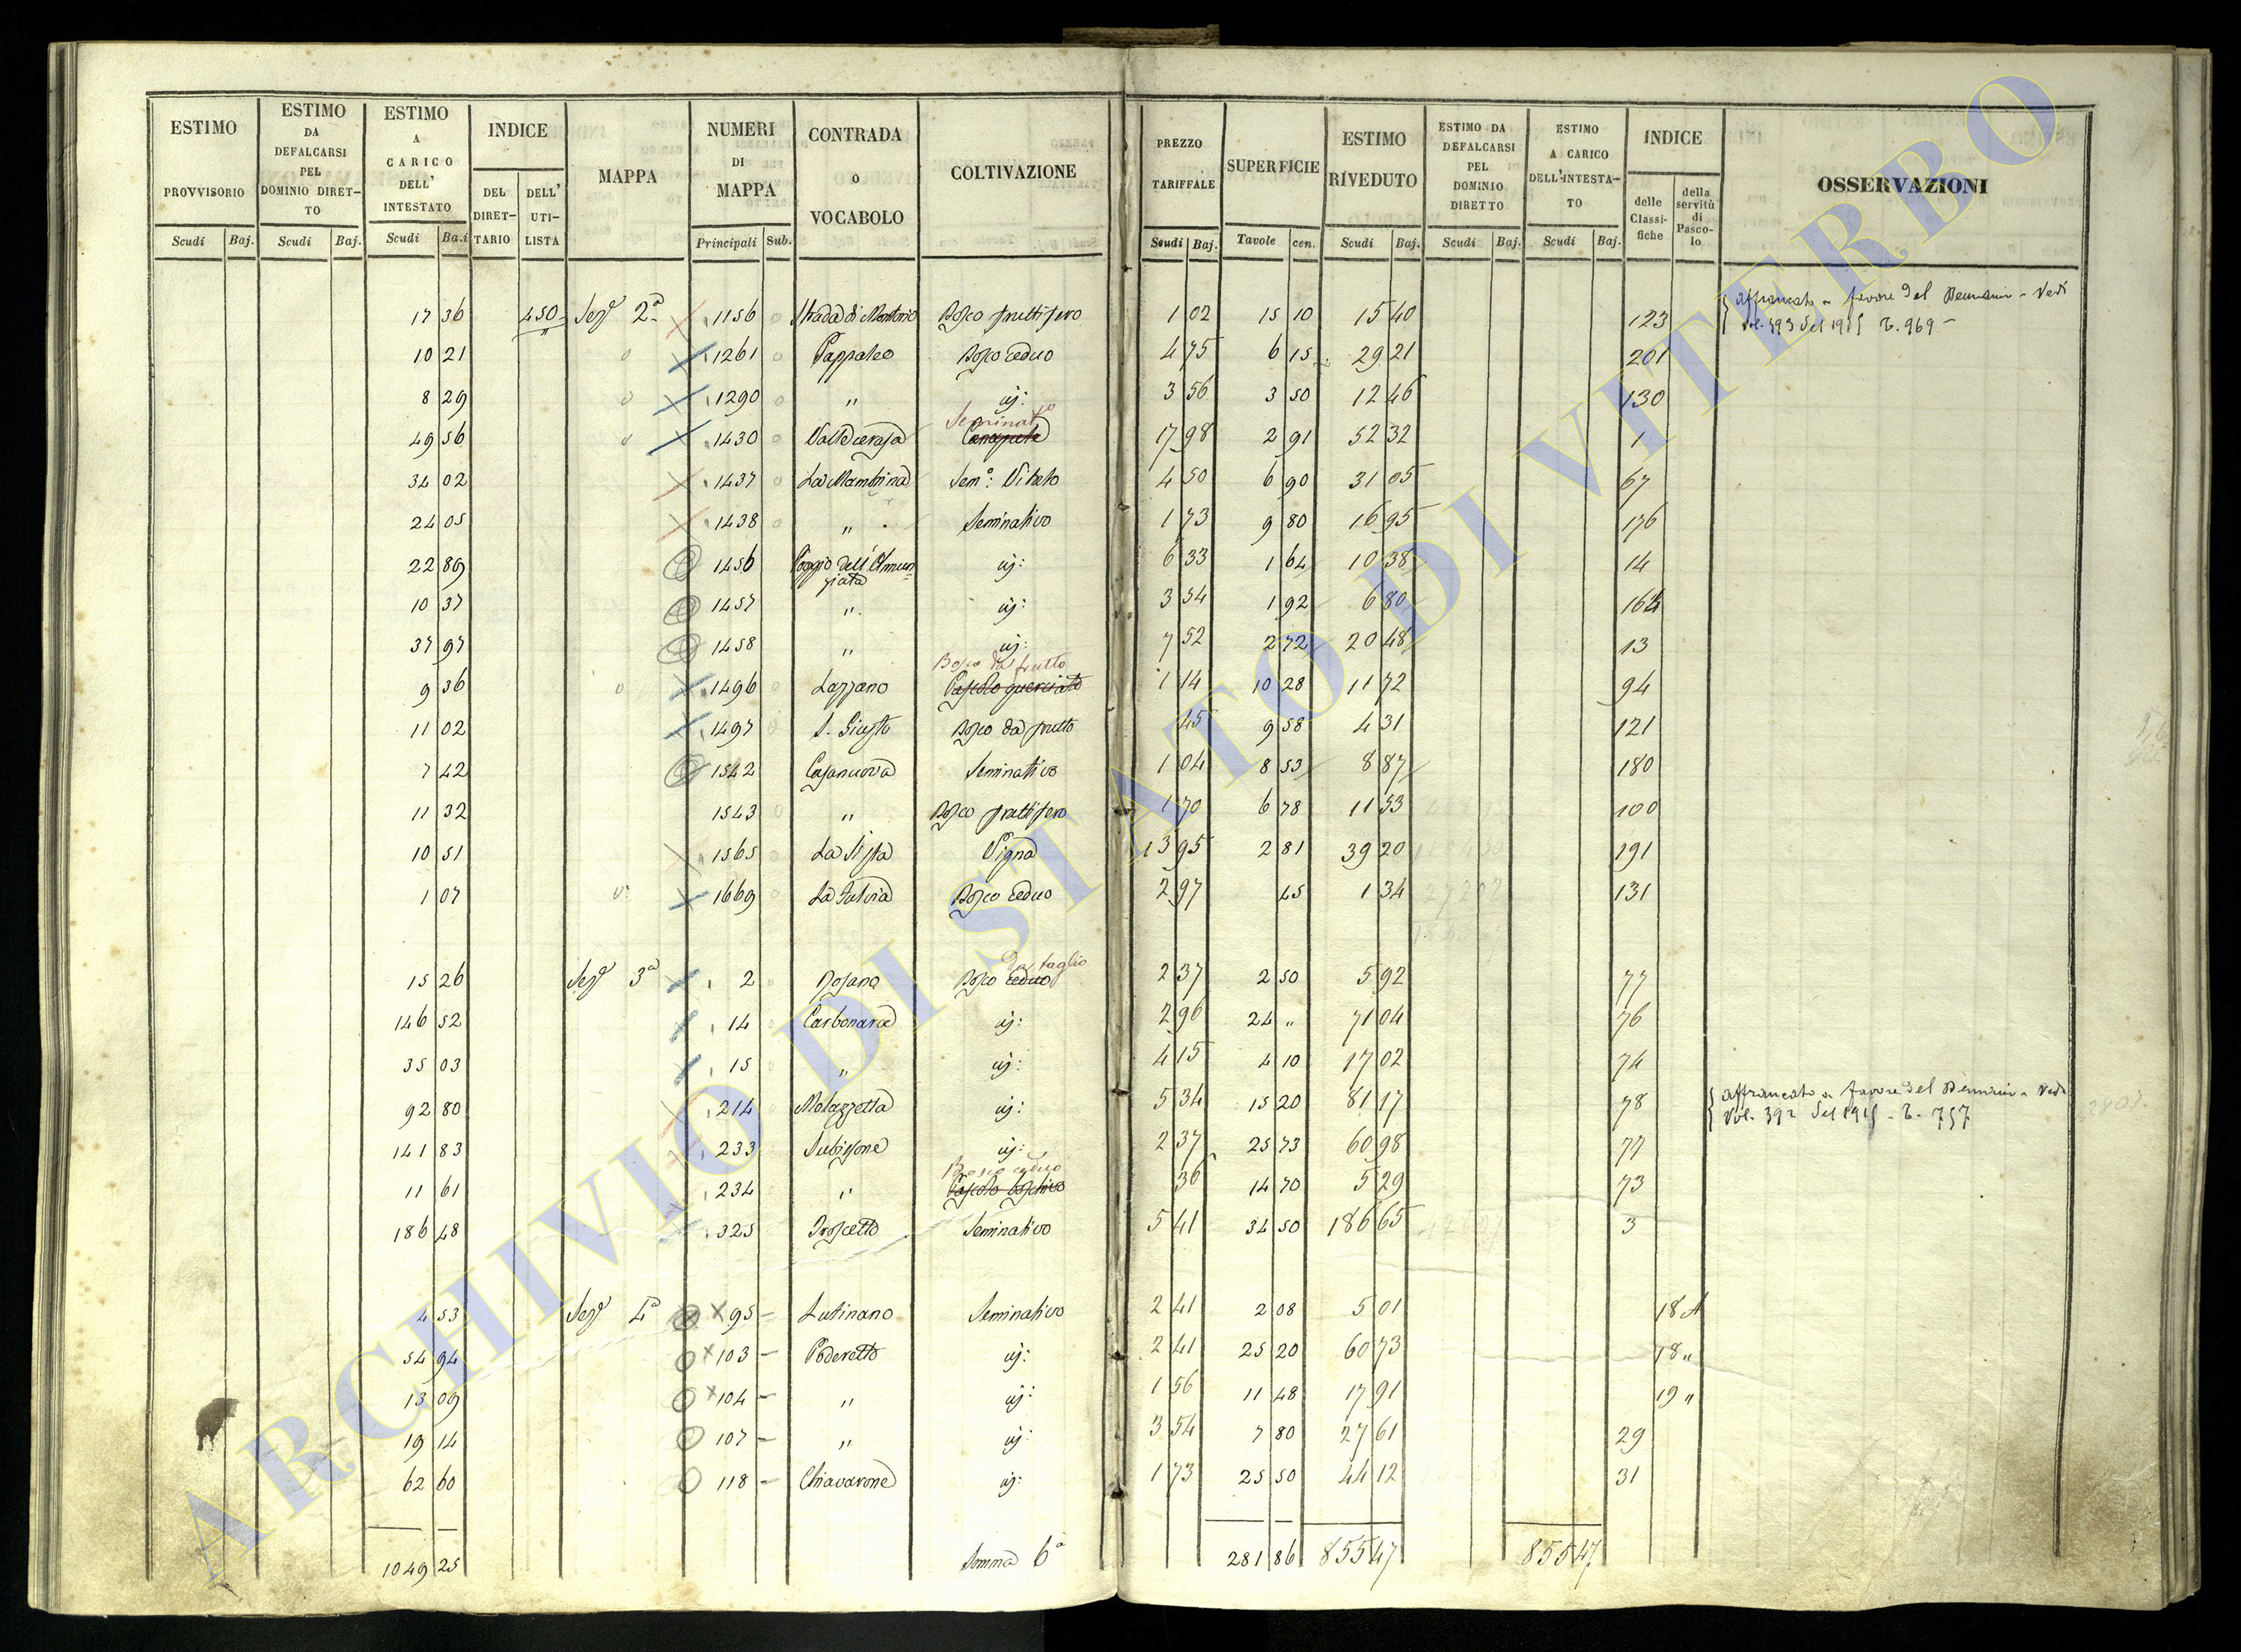 ESTIMO PROVVISORIO
Scudi Baj.
ESTIMO DA DEFALCARSI PEL DOMINIO DIRET-TO
Scudi Baj.
ESTIMO A CARICO DELL' INTESTATO
Scudi Ba.i
INDICE
DEL DIRET-TARIO
DELL' UTI-LISTA
MAPPA
NUMERI DI MAPPA
Principali Sub.
CONTRADA O VOCABOLO
COLTIVAZIONE
PREZZO TARIFFALE
Scudi Baj.
SUPERFICIE
Tavole cen.
ESTIMO RIVEDUTO
Scudi Baj.
ESTIMO DA DEFALCARSI PEL DOMINIO DIRETTO
Scudi Baj.
ESTIMO A CARICO DELL'INTESTA-TO
Scudi Baj.
INDICE
delle Classi-fiche
della servitù di Pasco-lo
OSSERVAZIONI
17 36 450 Sez.e 2a 1156 Strada di Montorio Bosco fruttifero 1 02 15 10 15 40 123 affrancato a favore del Demanio - Vedi
Vol. 393 del 1915 N. 969 -
10 21 1261 Pappaleo Bosco ceduo 4 75 6 15 29 21 201
8 29 1290 " id: 3 56 3 50 12 46 130
Seminativo
49 56 1430 17 98 2 91 52 32 1
34 02 1437 La Mambrina Sem.o Vitato 4 50 6 90 31 05 67
24 05 1438 " Seminativo 1 73 9 80 16 95 176
22 89 1456 Poggio dell'Annun=ziata id: 6 33 1 64 10 38 14
10 37 1457 " id: 3 54 1 92 6 80
37 97 1458 " id: 7 52 2 72 20 48 13
Bosco da frutto
9 36 1496 Lazzano Pascolo querciato 1 14 10 28 11 72 94
11 02 1497 S. Giusto Bosco da frutto 45 9 58 4 31 121
7 42 1542 Casanuova Seminativo 1 04 8 53 8 87 180
11 32 1543 " Bosco fruttifero 1 70 6 78 11 53 100
10 51 1565 Vigna 13 95 2 81 39 20 191
1 07 1669 Bosco ceduo 2 97 45 1 34 131
da taglio
15 26 Sez.e 3a 2 Rosano Bosco ceduo 2 37 2 50 5 92 77
146 52 14 Carbonara id: 2 96 24 " 71 04 76
35 03 15 " id: 4 15 4 10 17 02 74
92 80 214 Molazzetta id: 5 34 15 20 81 17 78 affrancato a favore del Demanio - Vedi
Vol. 392 del 1915 - N. 757
141 83 233 Subissone id: 2 37 25 73 60 98 77
Bosco ceduo
11 61 234 " Pascolo boschivo 36 14 70 5 29 73
186 48 325 Seminativo 5 41 34 50 186 65 3
4 53 Sez.e 4a 95 Lutinano Seminativo 2 41 2 08 5 01 18 A
54 94 103 Poderetto id: 2 41 25 20 60 73 18 "
13 09 104 " id: 1 56 11 48 17 91 19 "
19 14 107 " id: 3 54 7 80 27 61 29
62 60 118 Chiavarone id: 1 73 25 50 44 12 31
1049 25 Somma 6a 281 86 855 47 855 47
ARCHIVIO DI STATO DI VITERBO